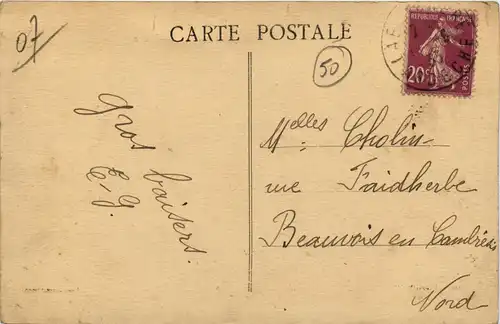 07
CARTE POSTALE
50
REPUBLIQUE FRANÇAISE
20c
POSTES
Gros baisers.
E. G.
Melles Cholin
rue Faidherbe
Beauvois en Cambrésis
Nord